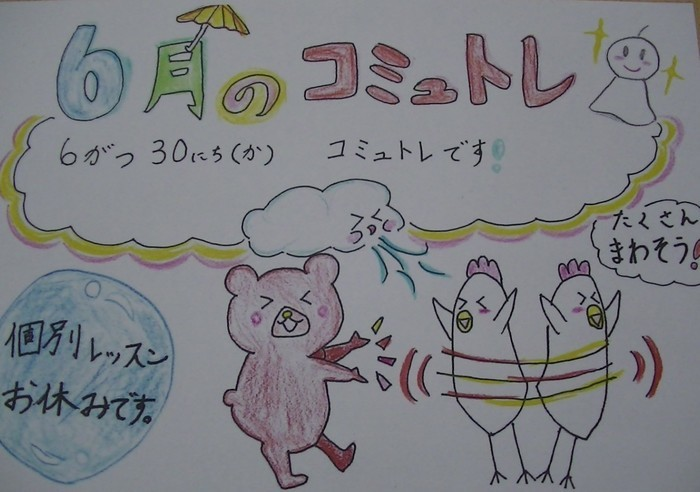 6月のコミュトレ
6がつ 30にち(か) コミュトレです!
たくさん
まわそう!
個別レッスン
お休みです。